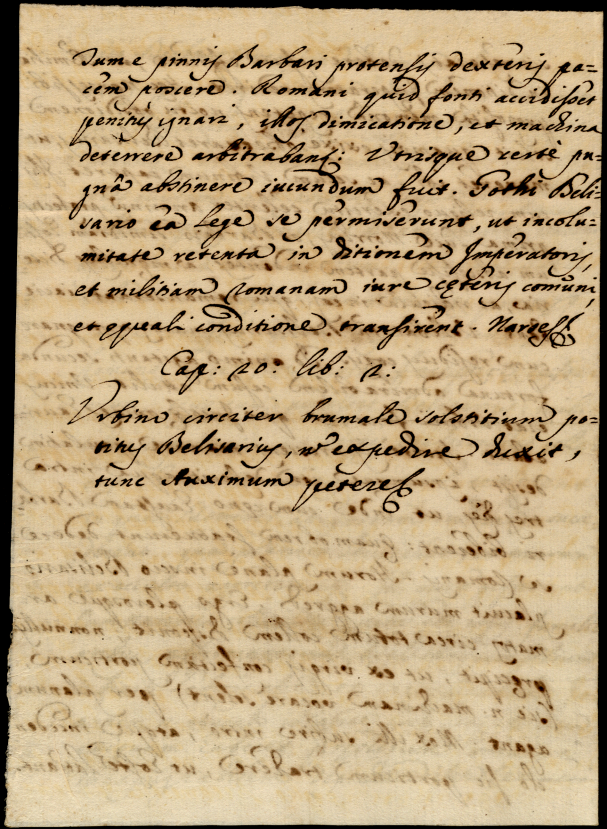 Tum e pinnis Barbari protensis dexteris pa-
cem poscere. Romani quid fonti accidisset
penitus ignari, illos dimicatione, et machina
deterrere arbitrabant: Utrisque certè pu-
gnâ abstinere iucundum fuit. Gothi Beli-
sario ea lege se permiserunt, ut incolu-
mitate retenta in ditionem Imperatoris,
et militiam romanam iure cęteris comuni,
et ęquali conditione transirent.
Cap: 20: lib: 2:
Urbino circiter brumale solstitium po-
titus Belisarius, expedire duxit,
tunc Auximum petere